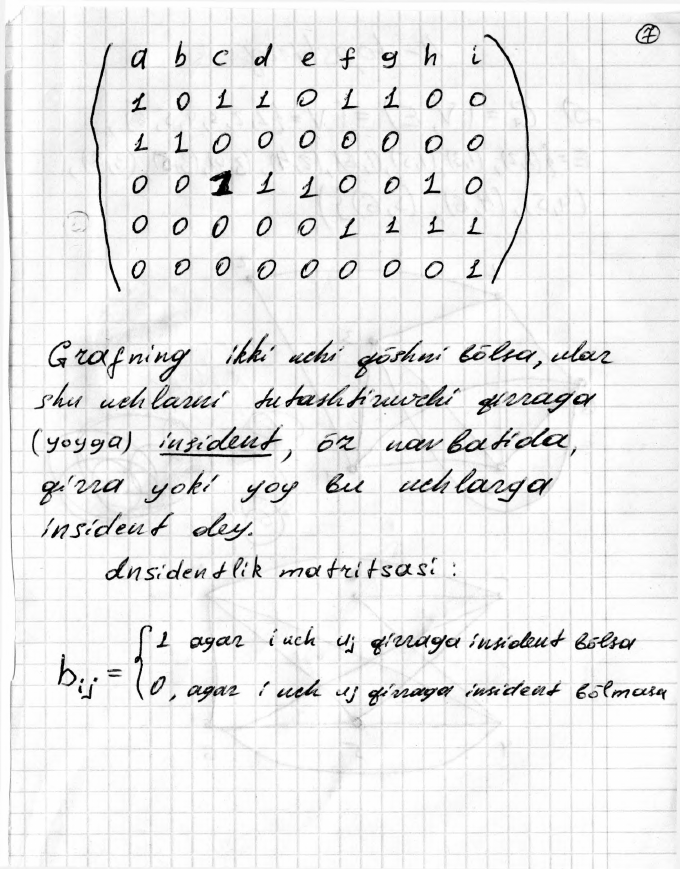 7
a b c d e f g h i
1 0 1 1 0 1 1 0 0
1 1 0 0 0 0 0 0 0
0 0 1 1 1 0 0 1 0
0 0 0 0 0 1 1 1 1
0 0 0 0 0 0 0 0 1
Grafning ikki uchi qōshni bōlsa, ular
shu uchlarni tutashtiruvchi qirraga
(yoyga) insident, ōz navbatida,
qirra yoki yoy bu uchlarga
insident dey.
Insidentlik matritsasi :
b_ij = { 1 agar i uch uj qirraga insident bōlsa
0, agar i uch uj qirraga insident bōlmasa